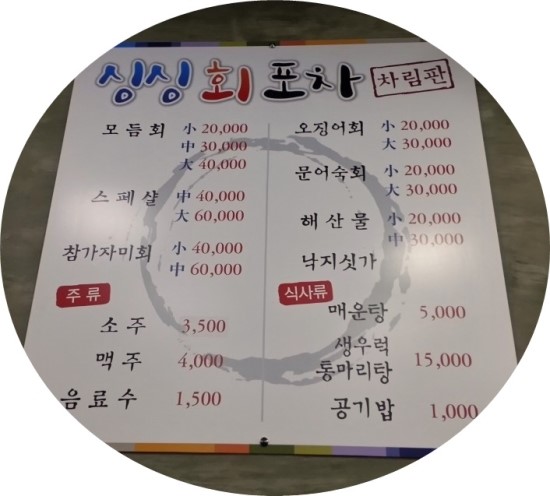 싱싱회포차 차림판
모듬회 小 20,000
中 30,000
大 40,000
스페샬 中 40,000
大 60,000
참가자미회 小 40,000
中 60,000
주류
소주 3,500
맥주 4,000
음료수 1,500
오징어회 小 20,000
大 30,000
문어숙회 小 20,000
大 30,000
해산물 小 20,000
中 30,000
낙지싯가
식사류
매운탕 5,000
생우럭
통마리탕 15,000
공기밥 1,000